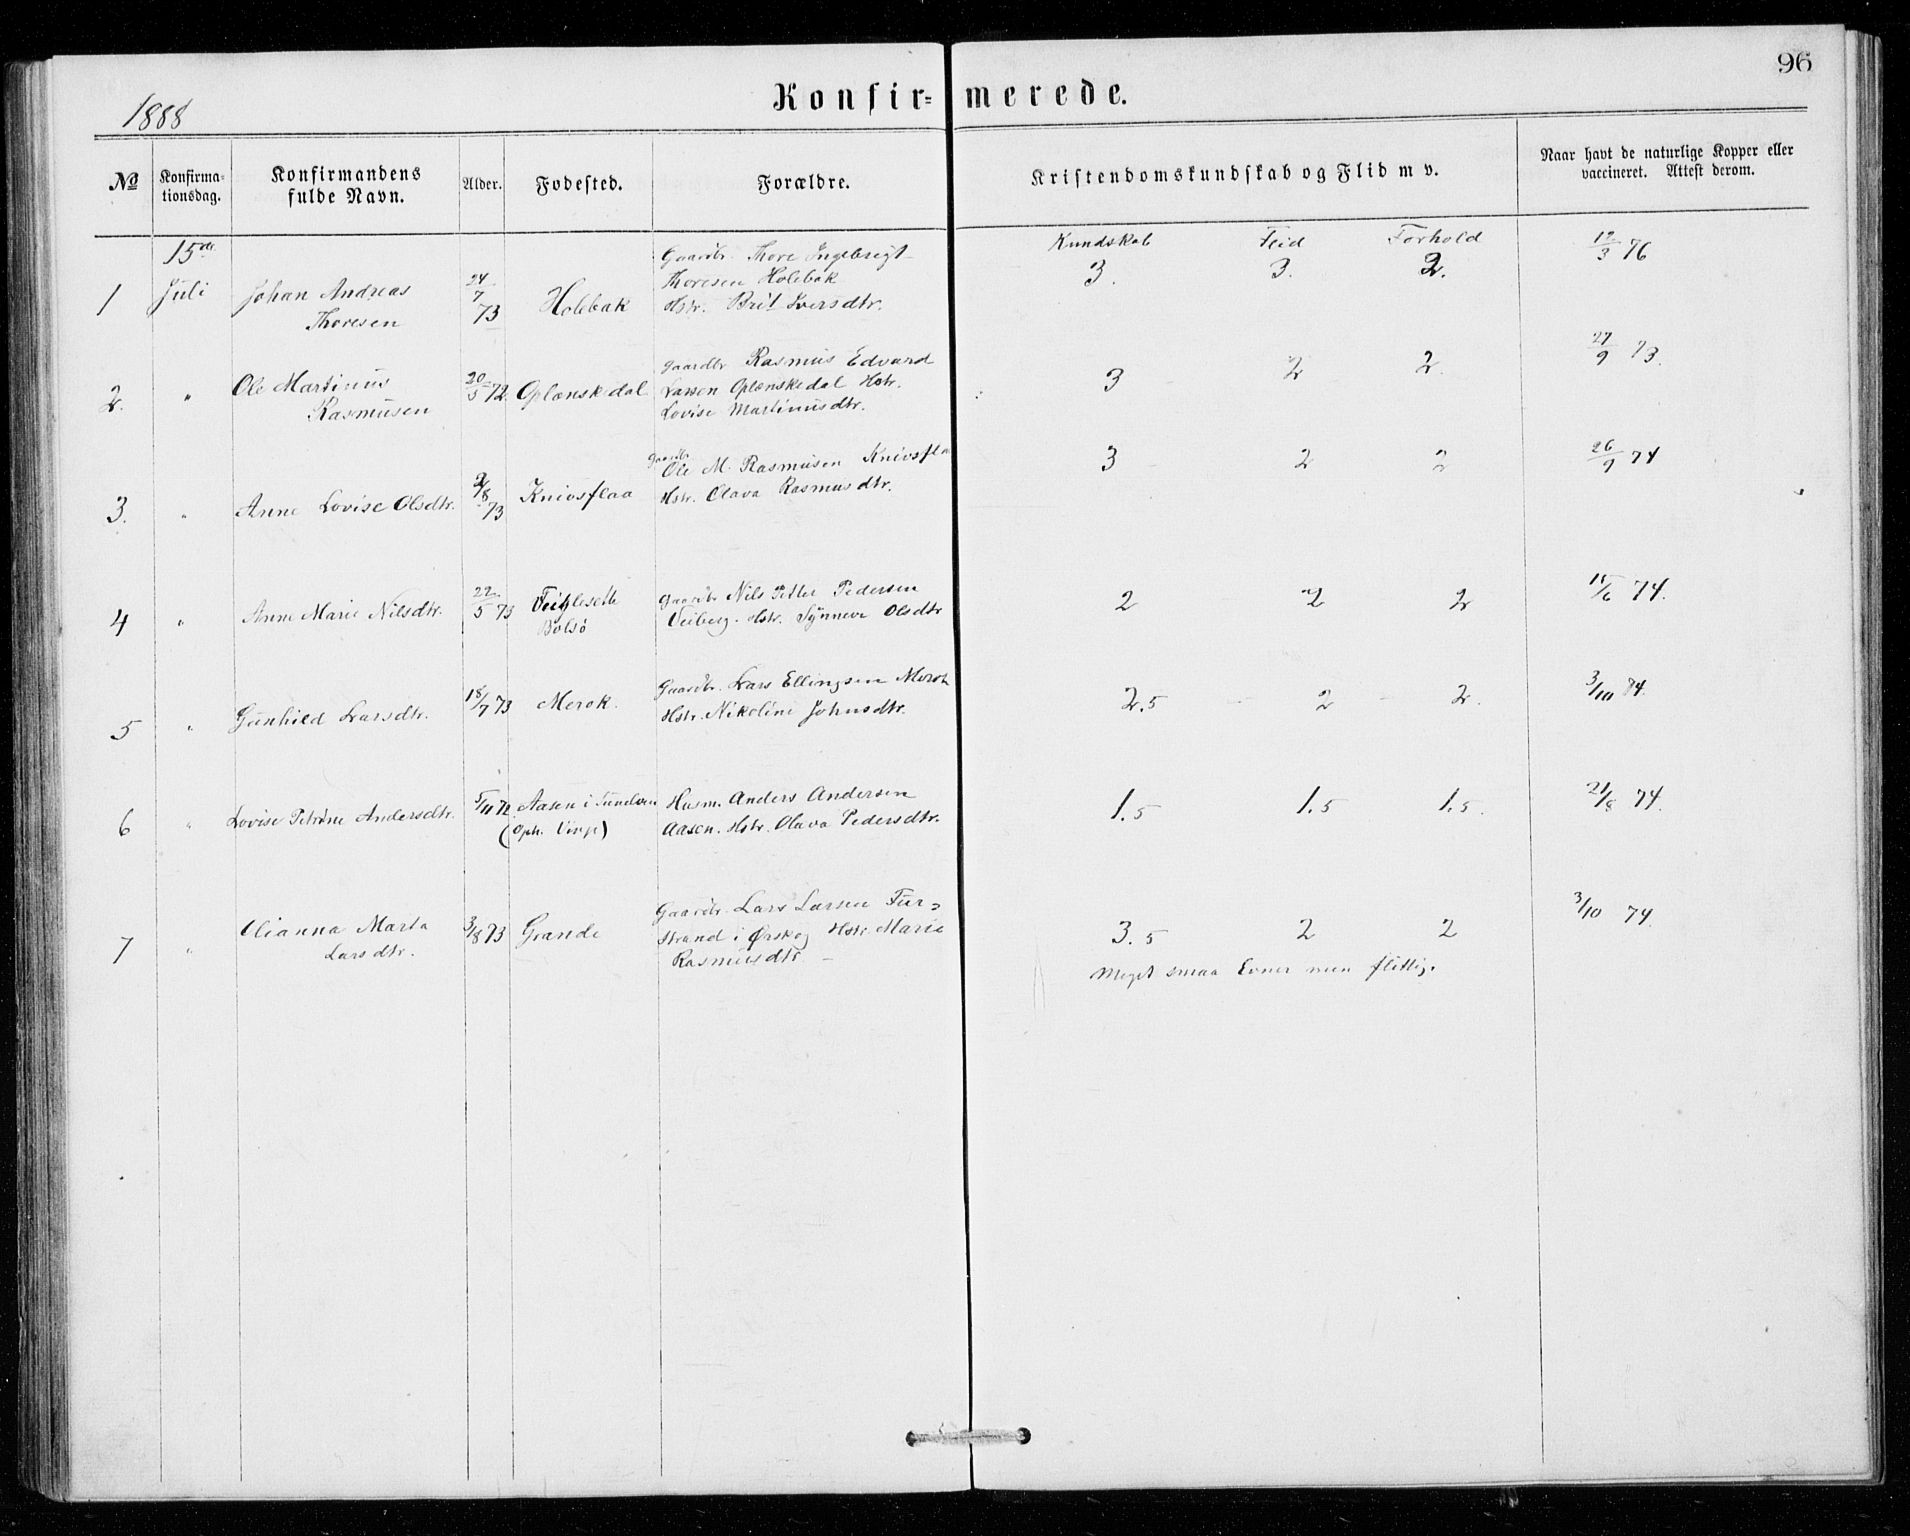 96
1888
Konfir= merede.
№ Konfirma-tionsdag. Konfirmandens fulde Navn. Alder. Fodested. Forældre. Kristendomskundskab og Flid m v. Naar havt de naturlige Kopper eller vaccineret. Attest derom.
Kundskab Flid Forhold
15de Gaardbr. Thore Ingebrigt
1 Juli Johan Andreas 24/7 Holebak Thoresen Holebak 3. 3. 2. 12/3 76
Thoresen 73 Hstr. Brit Iversdtr.
Gaardbr Rasmus Edvard
2. " Ole Martinus 20/5 72. Oplænskedal Larsen Oplænskedal Hstr. 3 2 2. 27/9 73.
Rasmusen Lovise Martinusdtr.
Gaardbr Ole M. Rasmusen Knivsfla
3. " Anne Lovise Olsdtr. 2/8 73 Knivsflaa Hstr. Olava Rasmusdtr. 3 2 2 26/9 74
4 " Anne Marie Nilsdtr. 22/5 73 Gaardbr Nils Petter Pedersen 2 2 2 74.
Bolsö Veiberg. Hstr. Synneve Olsdtr
5 " Gunhild Larsdtr. 18/7 73 Merok. Gaardbr. Lars Ellingsen Merok 2.5 2 2. 3/10 74.
Hstr. Nikoline Johnsdtr.
6 " Lovise Petrine Andersdtr. 5/11 72 Aasen i Husm. Anders Andersen 1.5 1.5 1.5. 21/8 74.
(Oph. Vinje) Aasen. Hstr. Olava Pedersdtr.
Gaardbr. Lars Larsen Fur=
7 " Olianna Marta 3/8 73 Grande strand i Ørskog Hstr. Marie 3.5 2 2 3/10 74.
Larsdtr. Rasmusdtr.
Meget smaa Evner men flittig.